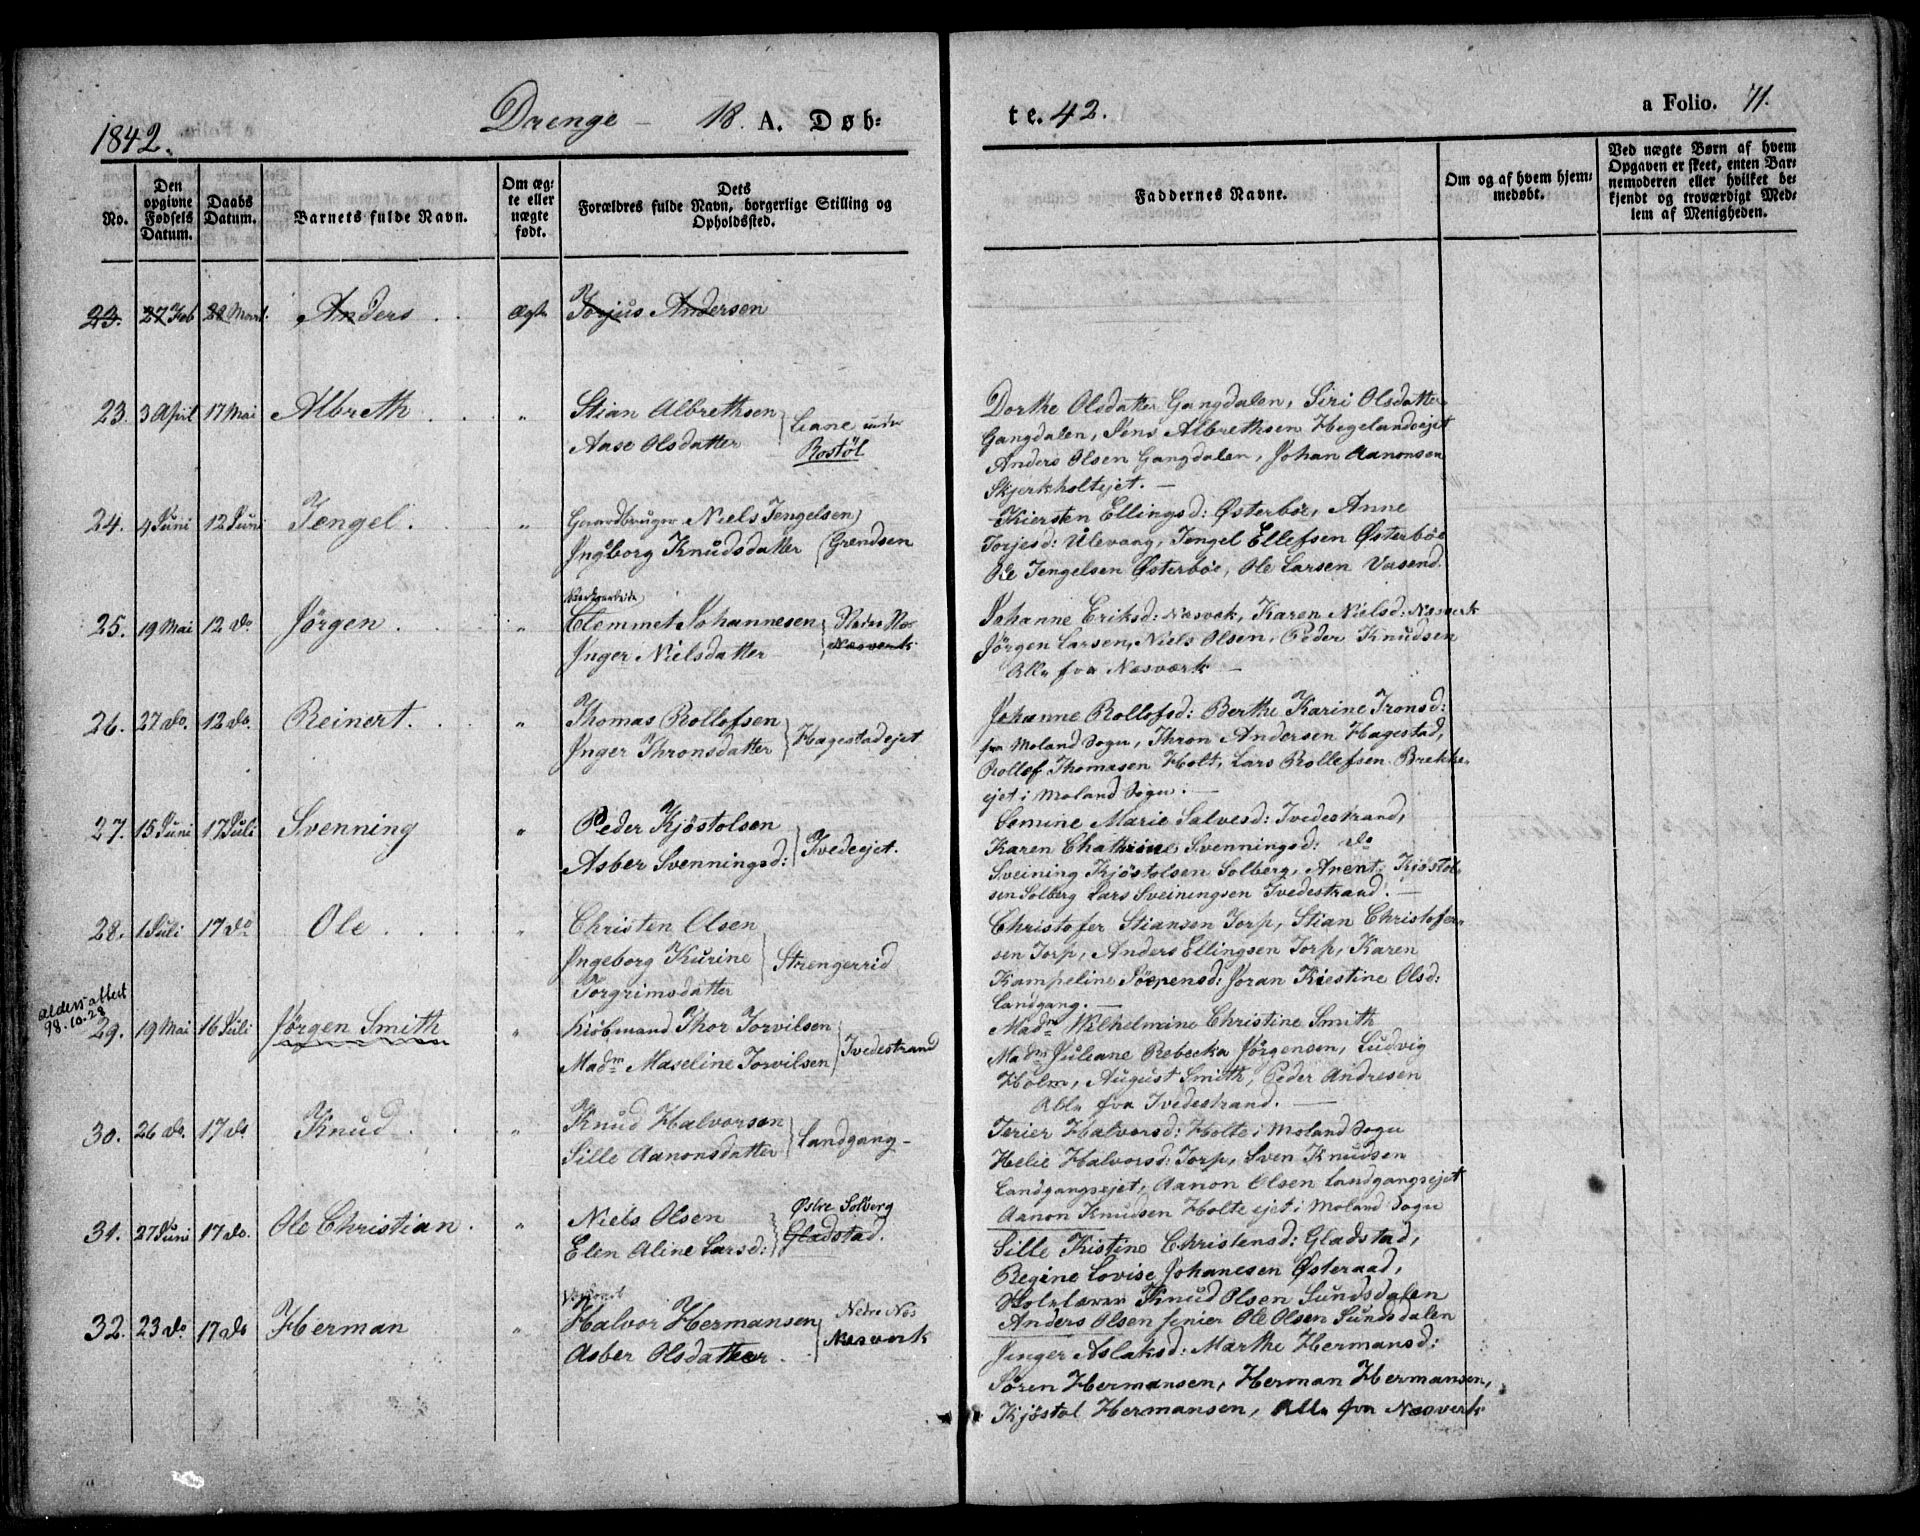 1842.
Drenge – 18 A. Døb-
te. 42.
a Folio. 71.
No.
Den opgivne Fødsels Datum.
Daabs Datum.
Barnets fulde Navn.
Om ægte eller nægte født.
Dets
Forældres fulde Navn, borgerlige Stilling og Opholdssted.
Faddernes Navne.
Om og af hvem hjemmedøbt.
Ved nægte Børn af hvem Opgaven er skeet, enten Barnemoderen eller hvilket bekjendt og troværdigt Medlem af Menigheden.
23. 27 Feb 28 Marts. Anders Ægte Torjus Andersen
23. 3 April 17 Mai Albreth „ Stian Albrethsen
Aase Olsdatter } Liane under
Rostöl
Dorthe Olsdatter Gangdalen, Siri Olsdatter
Gangdalen, Jens Albrethsen Hegelandsejet
Anders Olsen Gangdalen, Johan Aanonsen
Skjerkholtejet. —
24. 4 Juni 12 Juni Tengel. „ Gaardbruger Niels Tengelsen
Ingborg Knudsdatter } Grendsen
Kiersten Ellingsd: Østerböe, Anne
Torjesd: Ulevaag, Tengel Ellefsen Østerböe
Ole Tengelsen Østerböe, Ole Larsen Vasend.
25. 19 Mai 12 do Jörgen „ Verksarbeider
Clemmet Johannesen
Inger Nielsdatter } Nedre Næs
Næsverk
Johanne Eriksd: Næsvek, Karen Nielsd: Næsverk
Jörgen Larsen, Niels Olsen, Peder Knudsen
Alle fra Næsværk —
26. 27 do. 12 do. Reinert. „ Thomas Rollofsen
Inger Thronsdatter } Hagestadejet
Johanne Rollofsd: Berthe Karine Tronsd:
fra Moland Sogn, Thron Andersen Hagestad,
Rollof Thomasen Holt, Lars Rollefsen Brekke-
ejet i Moland Sogn. —
27. 15 Juni 17 Juli Svenning „ Peder Kjöstolsen
Asber Svenningsd: } Tvedeejet.
Semine Marie Salvesd: Tvedestrand,
Karen Chathrine Svenningsd: do
Sveining Kjöstolsen Solberg, Anent: Kjöstol-
sen Solberg Lars Sveiningsen Tvedestrand. —
28. 1 Juli 17 do Ole „ Christen Olsen
Ingeborg Kurine
Torgrimsdatter } Strengerrid
Christofer Stiansen Torp, Stian Christofer-
sen Torp, Anders Ellingsen Torp, Karen
Kampeline Sörensd: Joran Kiestine Olsd:
Landgang. —
aldersattest
98.10.28
29. 19 Mai 16 Juli Jörgen Smith „ Kiöbmand Thor Torvilsen
Madm Maseline Torvilsen } Tvedestrand
Madm Wilhelmine Christine Smith
Madm Juliane Rebecka Jörgensen, Ludvig
Holm, August Smith, Peder Andresen
Alle fra Tvedestrand. —
30. 26 do. 17 do Knud „ Knud Halvorsen
Sille Aanonsdatter } Landgang –
Terier Halvorsd: Holte i Moland Sogn
Helie Halvorsd: Torp, Sven Knudsen
Landgangsejet, Aanon Olsen Landgangsejet
Aanon Knudsen Holte ejet i Moland Sogn
31. 27 Juni 17 do. Ole Christian „ Niels Olsen
Elen Aline Larsd: } Østre Solberg
Gladstad.
Sille Kistine Christensd: Gladstad,
Regine Lovise Johanesen Østeraad,
Knud Olsen Sundsdalen
Anders Olsen senier Ole Olsen Sundsdalen
32. 23 do 17 do Herman „ Halvor Hermansen
Asber Olsdatter } Nedre Næs
Næsverk
Jinger Aslaksd: Marthe Hermansd:
Sören Hermansen, Herman Hermansen,
Kjöstol Hermansen, Alle fra Næsverk